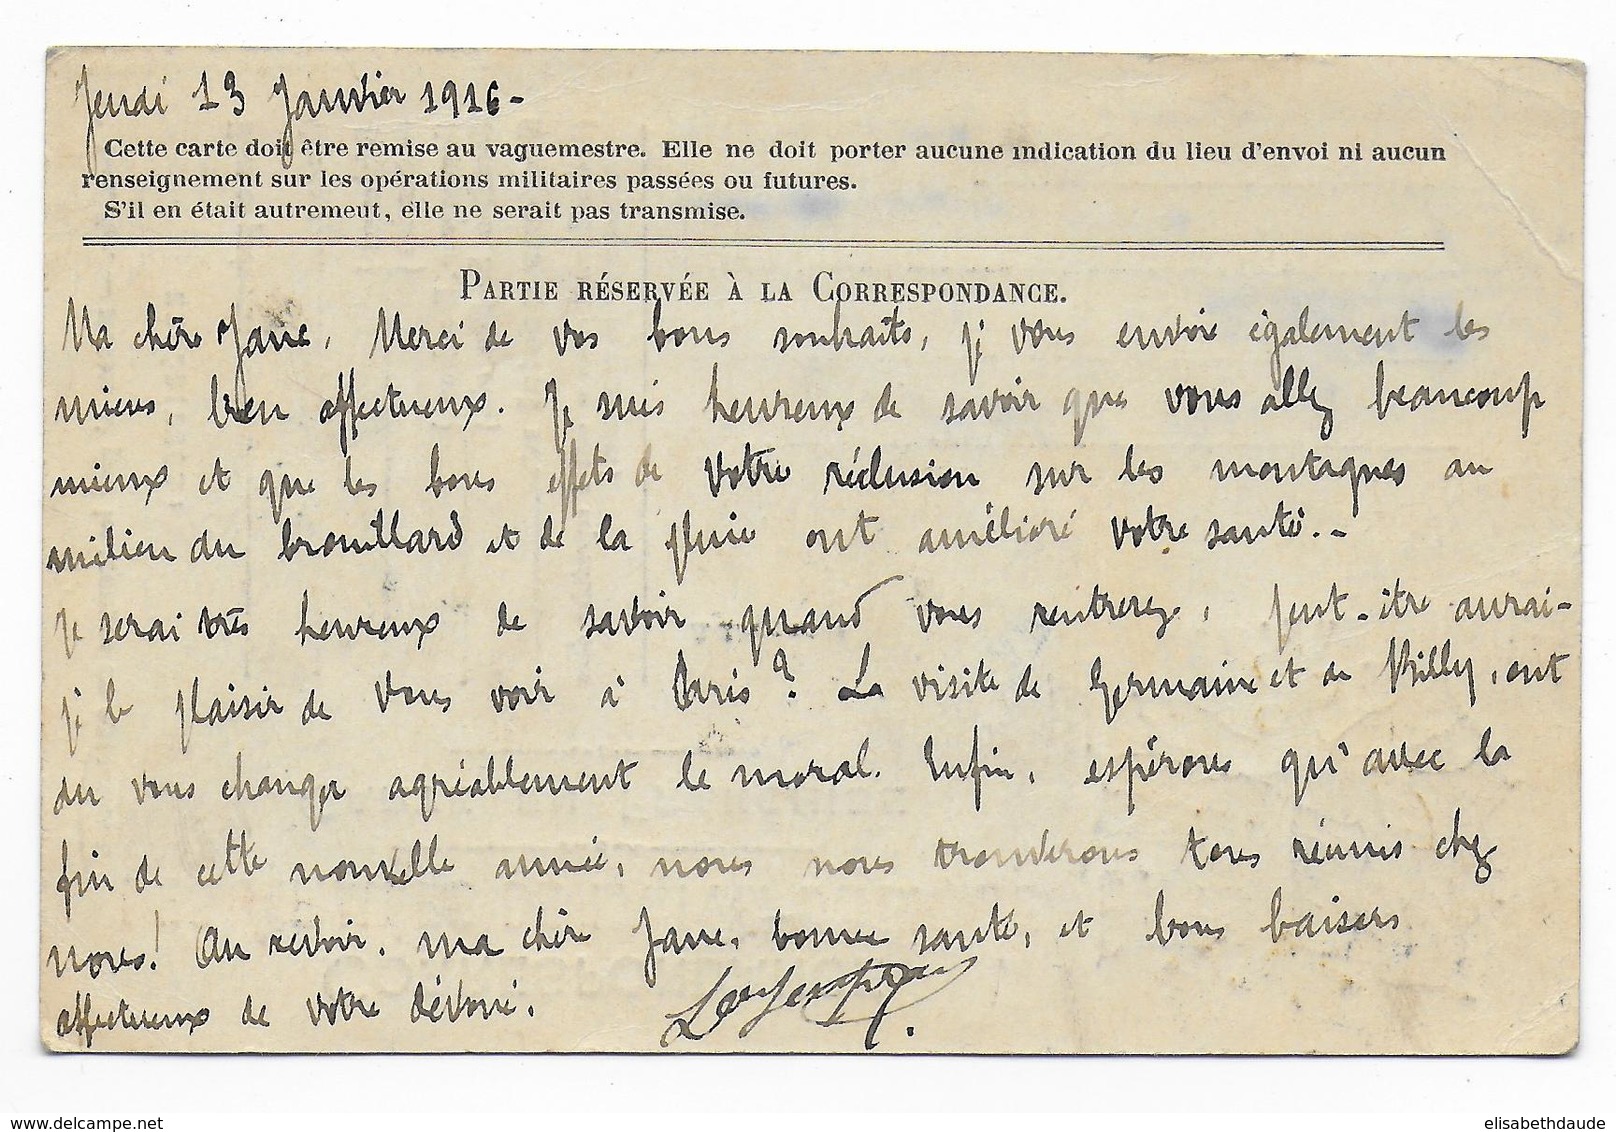 Jeudi 13 Janvier 1916 -
Cette carte doit être remise au vaguemestre. Elle ne doit porter aucune indication du lieu d'envoi ni aucun
renseignement sur les opérations militaires passées ou futures.
S'il en était autrement, elle ne serait pas transmise.
PARTIE RÉSERVÉE À LA CORRESPONDANCE.
Ma chère Jane, Merci de vos bons souhaits, je vous envoie également les
miens, bien affectueux. Je suis heureux de savoir que vous allez beaucoup
mieux et que les bons effets de votre réclusion sur les montagnes au
milieu du brouillard et de la pluie ont amélioré votre santé. -
Je serai très heureux de savoir quand vous rentrerez, peut-être aurai-
je le plaisir de vous voir à Paris? La visite de Germaine et de Billy, ont
du vous changer agréablement le moral. Enfin, espérons qu'avec la
fin de cette nouvelle année, nous nous trouverons tous réunis chez
nous! Au revoir, ma chère Jane, bonne santé, et bons baisers
affectueux de votre dévoué.
elisabethdaude